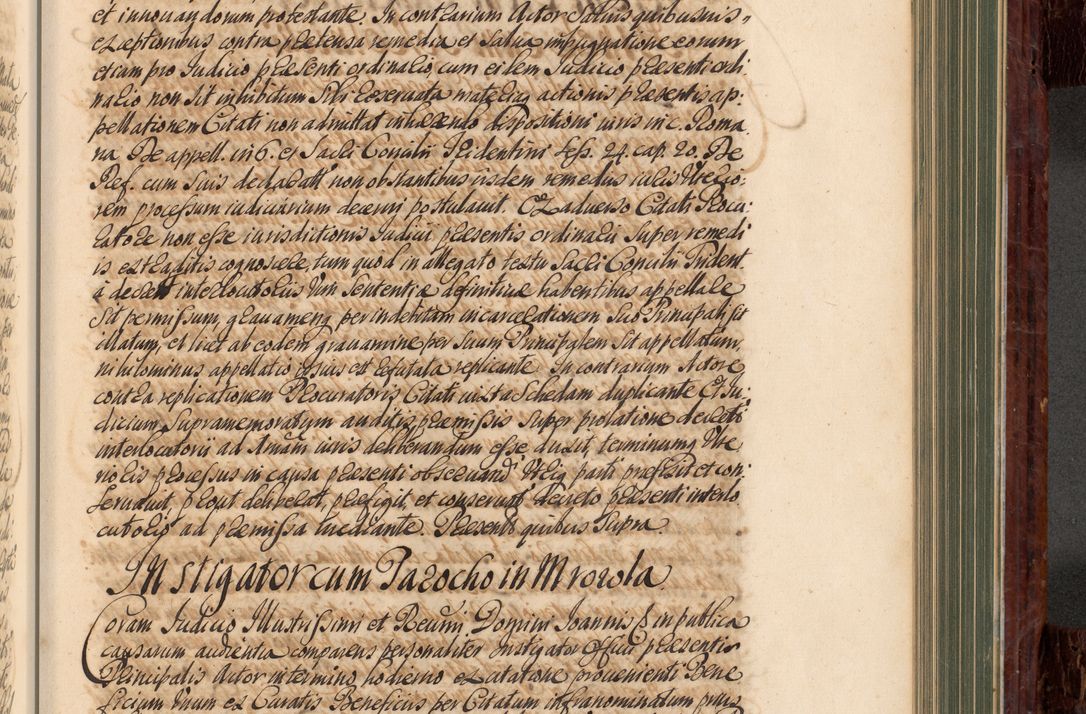 et innovandorum protestante. In contrarium Actor Salvis quibusvis
exceptionibus contra praetensa remedia et salva impugnatione eorum
etiam pro Iudicio praesenti ordinario, cum eidem Iudicio praesenti ordi
nario non sit inhibitum sibi reservata materia actionis praesentis ap:
pellationem Citati non admittat inhaerendo dispositioni iuris in c. Roma
na De appell. in 6. et Sacri Concilii Tridentini Sess. 24. cap. 20. De
Ref. cum suis declarat. non obstantibus iisdem remediis iuris Ulterio:
rem processum iudiciarium decerni postulavit. Ex adverso Citati Procu:
ratore non esse iurisdictionis Iudicii praesentis ordinarii super remedi
is extraditis cognoscere, tum quod in allegato textu Sacri Concilii Trident.
à decret interlocutoriis vim Sententiae definitivae habentibus appellare
sit permissum, gravamenq per indebitam incarcerationem suo Principali sit
illatum, et licet ab eodem gravamine per suum Principalem sit appellatum,
nihilominus appellatio ipsius et refutata replicante. In contrarium Actore
contra replicationem Procuratoris Citati iuxta Schedam duplicante Et Iu:
dicium Supramemoratum auditis praemissis super prolatione decreti
interlocutorii ad primam iuris deliberandum esse duxit, terminumq Ulte
rioris processus in causa praesenti observand. Utriq parti praefixit et con:
servavit, prout deliberat, praefigit, et conservat, decreto praesenti interlo
cutorio ad praemissa mediante. Praesent. quibus supra
Instigator cum Parocho in Mrozola
Coram Iudicio Illustrissimi et Revern. Domini Ioannis § in publica
causarum audientia comparens personaliter Instigator Officii praesentis
Principalis Actor in termino hodierno ex latatione provenienti Bene
ficium Unum ex Curatis Beneficiis per Citatum infranominatum prius